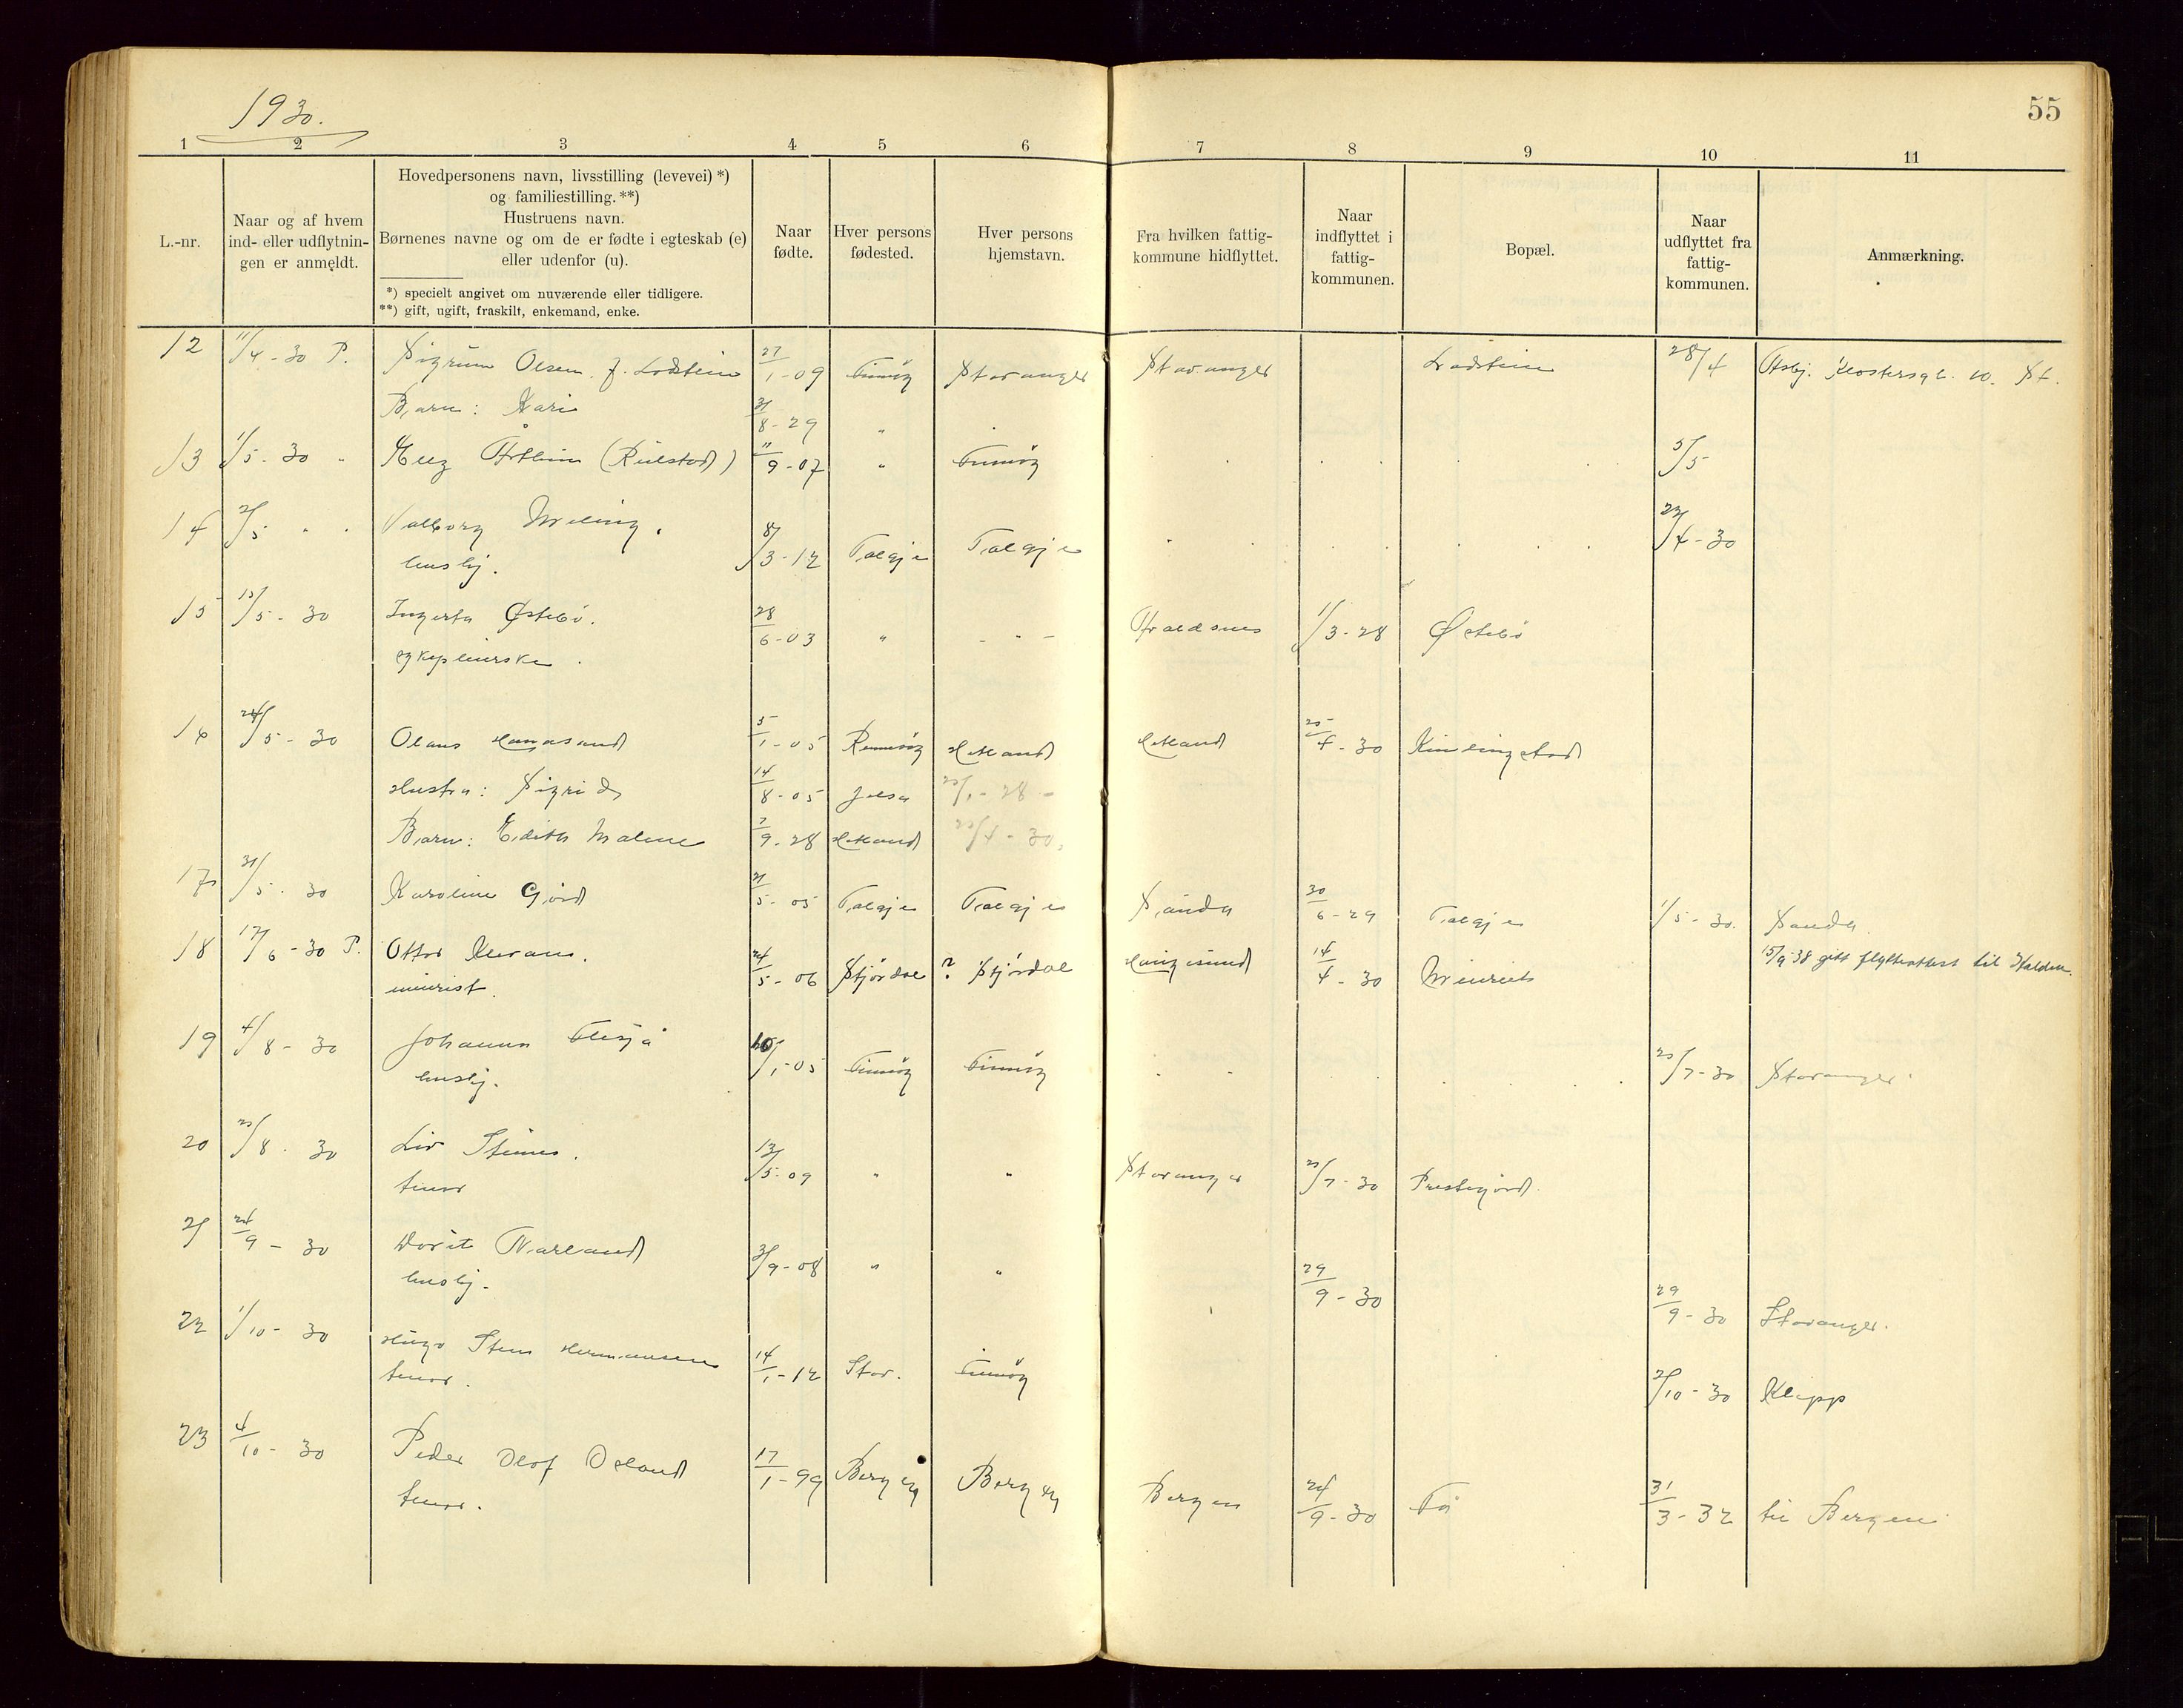 1930.
55
1 2 3 4 5 6 7 8 9 10 11
L.-nr.
Naar og af hvem
ind- eller udflytnin-
gen er anmeldt.
Hovedpersonens navn, livsstilling (levevei) *)
og familiestilling. **)
Hustruens navn.
Børnenes navne og om de er fødte i egteskab (e)
eller udenfor (u).
*) specielt angivet om nuværende eller tidligere.
**) gift, ugift, fraskilt, enkemand, enke.
Naar
fødte.
Hver persons
fødested.
Hver persons
hjemstavn.
Fra hvilken fattig-
kommune hidflyttet.
Naar
indflyttet i
fattig-
kommunen.
Bopæl.
Naar
udflyttet fra
fattig-
kommunen.
Anmærkning.
12 11/4-30 P. Sigrun Olsen f. Lodstein 27/1-09 Finnöy Stavanger Stavanger Ladstein 28/4 Klostersgt. 10. St.
Barn: Kari 31/8-29 "
13 1/5-30 " (Rulstad) 11/9-07 " Finnöy 5/5
14 2/5 " " Valborg Meling. 8/3-12 Talgje Talgje 22/4-30
huslig.
15 15/5-30 Ingerta Østebö. 28/6-03 " - " - 1/3-28 Østebö
sykepleierske.
16 24/5-30 Olaus Hanasand 5/1-05 Rennesöy Hetland Hetland 25/4-30 Kindingstad
Hustru: Sigrid 14/8-05 Jelsa 25/1-28 -
Barn: Edith Malene 7/9-28 Hetland 25/4-30.
17 31/5-30 Karoline Gård 21/5-05 Talgje Talgje Sauda 30/6-29 Talgje 1/5-30. Sauda.
18 17/6-30 P. Ottar 24/5-06 Stjördal ? Stjördal Haugesund 14/4-30 Meieriet 15/9-38 gitt flytteattest til Halden.
meierist.
19 4/8-30 Johanna Flesjå 10/1-05 Finnöy Finnöy 25/7-30 Stavanger.
huslig.
20 25/8-30 Liv Steines. 13/5-09 " " Stavanger 25/7-30 Prestegård.
tenar
21 24/9-30 Dorit Narland 3/9-08 " " 29/9-30 29/9-30 Stavanger.
huslig.
22 1/10-30 Hugo Sten Hermansen 14/1-12 Stav. Finnöy 2/10-30 Klepp
tenar.
23 4/10-30 Peder Olof Oeland 17/1-99 Bergen Bergen Bergen 24/9-30 Få 31/3-32 til Bergen.
tenar.